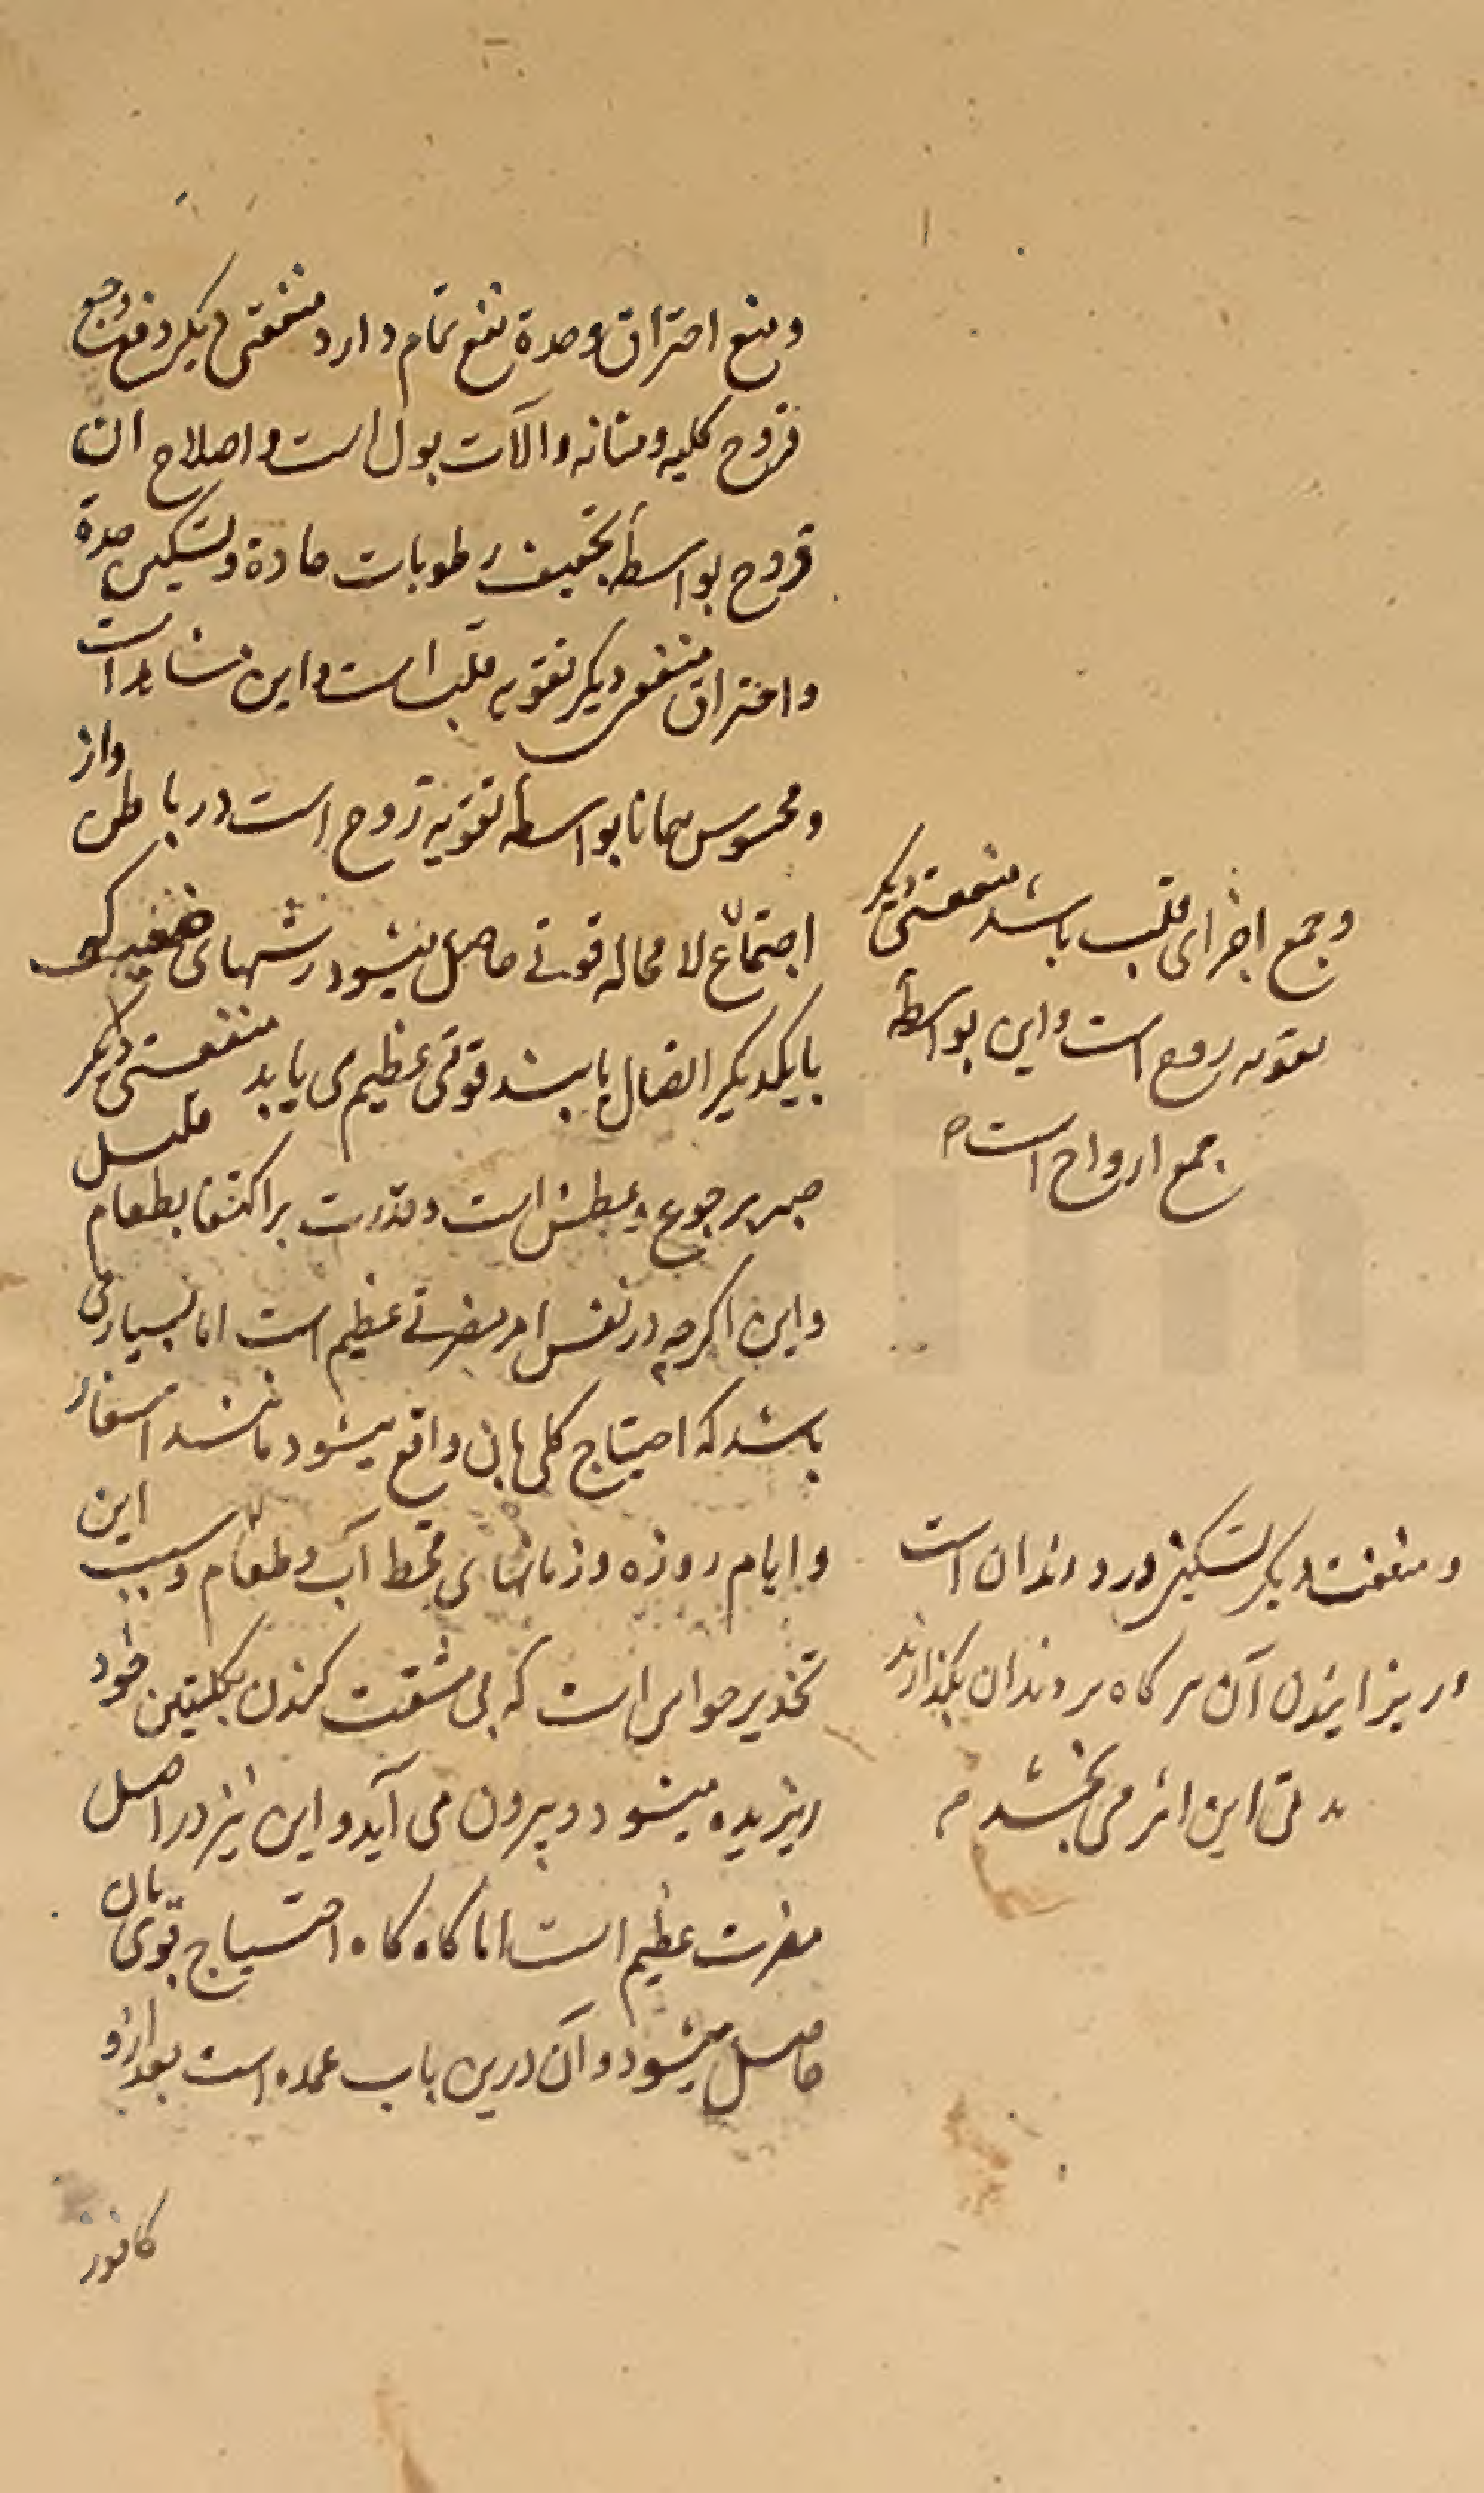 ومنع احتراق وحدة نفع تمام دارد منفعتی دیکر دفع وجع
قروح کلیه ومثانه والآت بول است واصلاح ان
قروح بواسطه تجفیف رطوبات حادة وتسکین حدة
واحتراق منفعتی دیکر تقویه قلب است واین مشاهد است
ومحسوس همانا بواسطه تقویه روح است در باطن واز
اجتماع لا محاله قوتے حاصل میشود رشتهای ضعیف که
بایکدیکر اتصال یابند قوتی عظیم می یابد منفعتی دیکر
صبر بر جوع وعطش است وقدرت بر اکتفا بطعام قلیل
واین اکرچه در نفس امر مضرتے عظیم است اما بسیار می
باشد که احتیاج کلی بان واقع میشود مانند اسفار
وایام روزه وزمانهای قحط آب وطعام وسبب این
تخدیر حواس است که بی مشقت کندن بکلبتین خود
ریزیده میشود وبیرون می آید واین نیز در اصل
مضرت عظیم است اما کاه کاه احتیاج قوی بان
حاصل میشود وآن درین باب عمده است بعد ازو
کافور
وجمع اجزای قلب باشد منفعتی دیکر
تقویه روح است واین بواسطه
جمع ارواح است
ومنفعت دیکر تسکین درد دندان است
وریزانیدن آن هر کاه بر دندان بکذارند
مدتی این اثر می بخشد